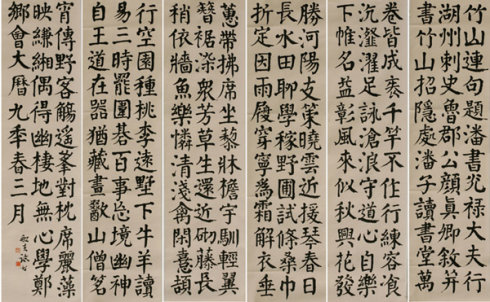 竹山連句題潘書光祿大夫行
湖州刺史魯郡公顏真卿敘并
書竹山招隱處潘子讀書堂萬
卷皆成袠千竿不住行練容飡
沆瀣濯足詠滄浪守道心自樂
下帷名益彰風來似秋興花發
勝河陽支策曉雲近援琴春日
長水田聊學稼野圃試條桑巾
折定因雨履穿寧為霜解衣垂
蕙帶拂席坐藜牀檐宇馴輕翼
簪裾染眾芳草生還近砌藤長
稍依牆魚樂憐清淺禽閑憙頡
行空園種桃李遠墅下牛羊讀
易三時罷圍棊百事忘境幽神
自王道在器猶藏晝歠山僧茗
宵傳野客觴遙峯對枕席麗藻
映縑緗偶得幽棲地無心學鄭
鄉會大曆九季春三月